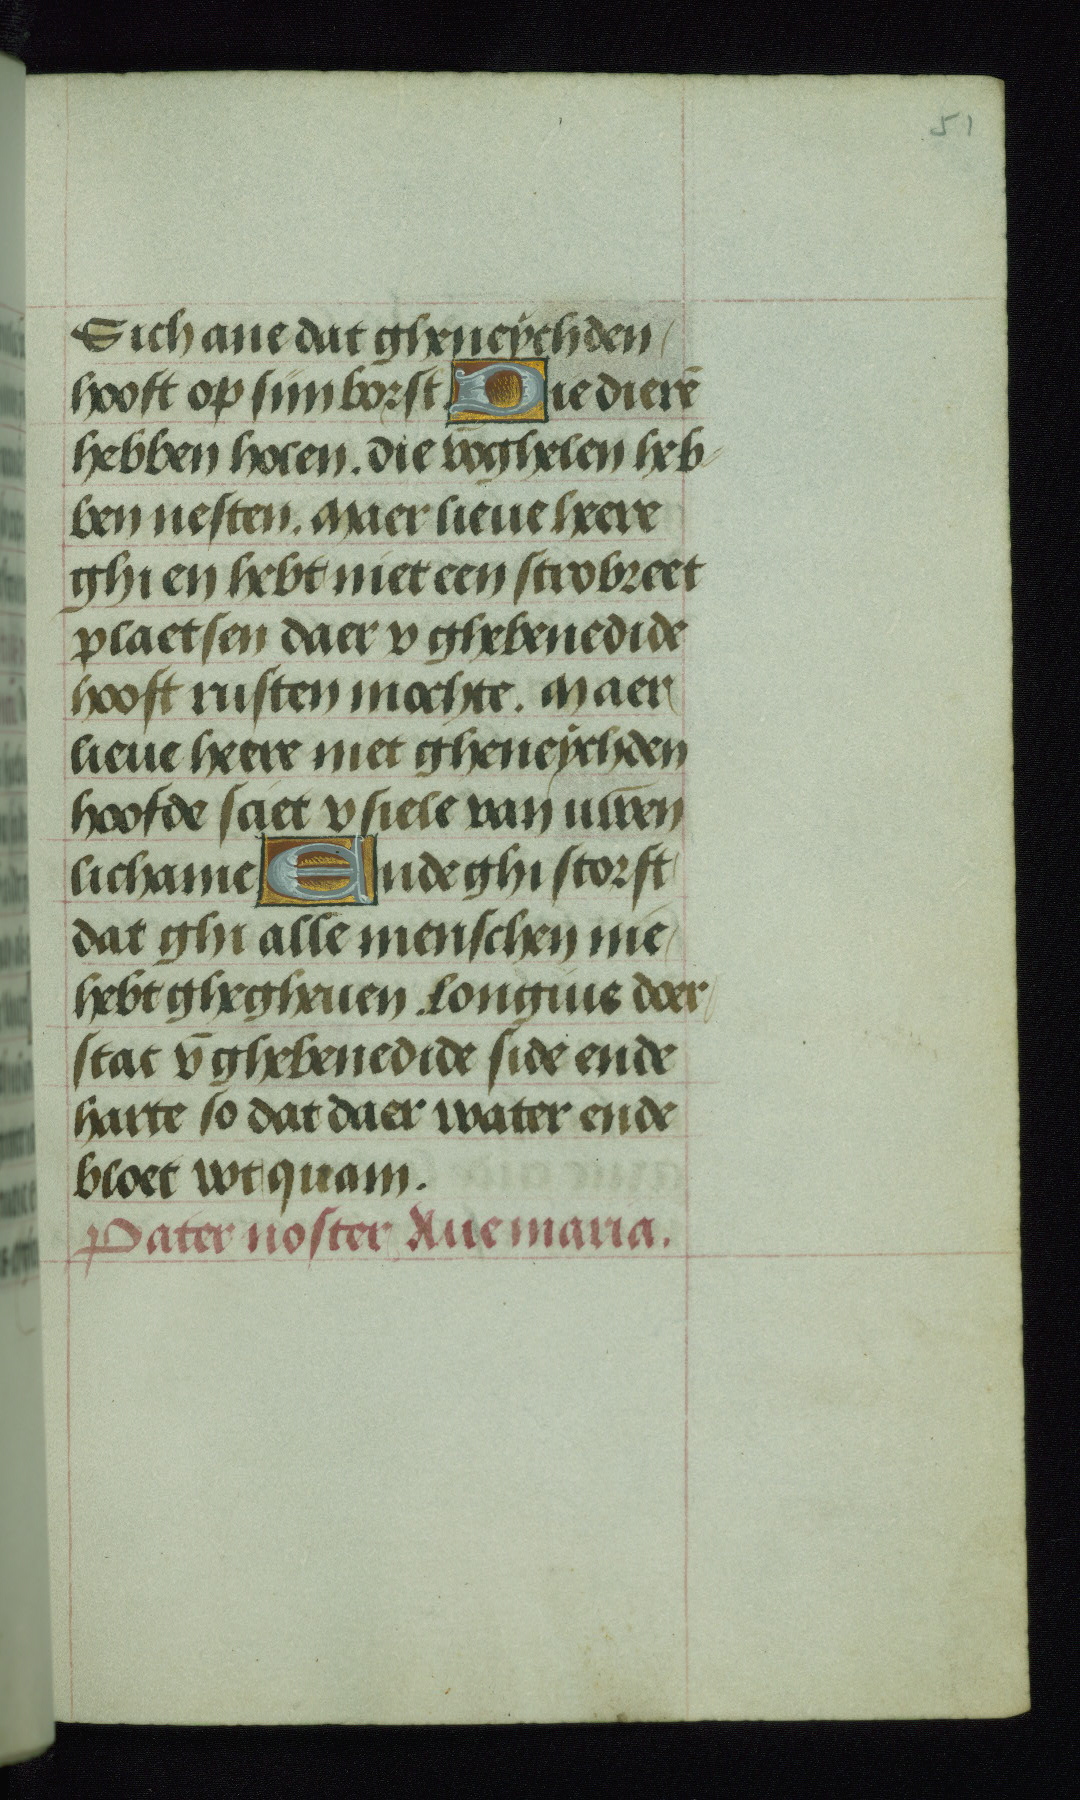 51
Sich ane dat gheneychden
hooft op siin borst. Die dierē
hebben holen. die voghelen heb
ben nesten. Maer lieue heere
ghi en hebt niet een strobreet
plaetsen daer v ghebenedide
hooft rusten mochte. Maer
lieue heere met gheneychden
hoofde sciet v siele van uwen
lichame Ende ghi storft
dat ghi alle menschen nie
hebt ghegheuen. Longius doer
stac v̄ ghebenedide side ende
harte so dat daer water ende
bloet wt quam.
Pater noster Aue maria.